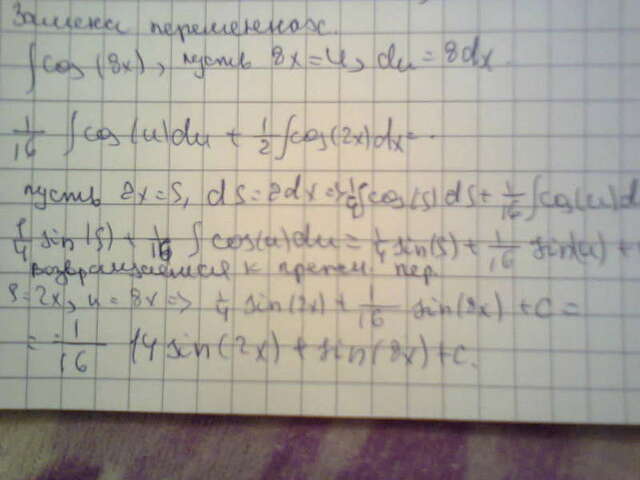 Замена переменных.
∫cos(8x), пусть 8x=u, du=8dx.
1/16 ∫cos(u)du + 1/2 ∫cos(2x)dx=
пусть 2x=S, dS=2dx => 1/4∫cos(S)dS+ 1/16 ∫cos(u)d
1/4 sin(S) + 1/16 ∫cos(u)du = 1/4 sin(S) + 1/16 sin(u) +
возвращаемся к прежн. пер.
S=2x, u=8x => 1/4 sin(2x) + 1/16 sin(8x) + c =
= 1/16 (4 sin(2x) + sin(8x) + c.